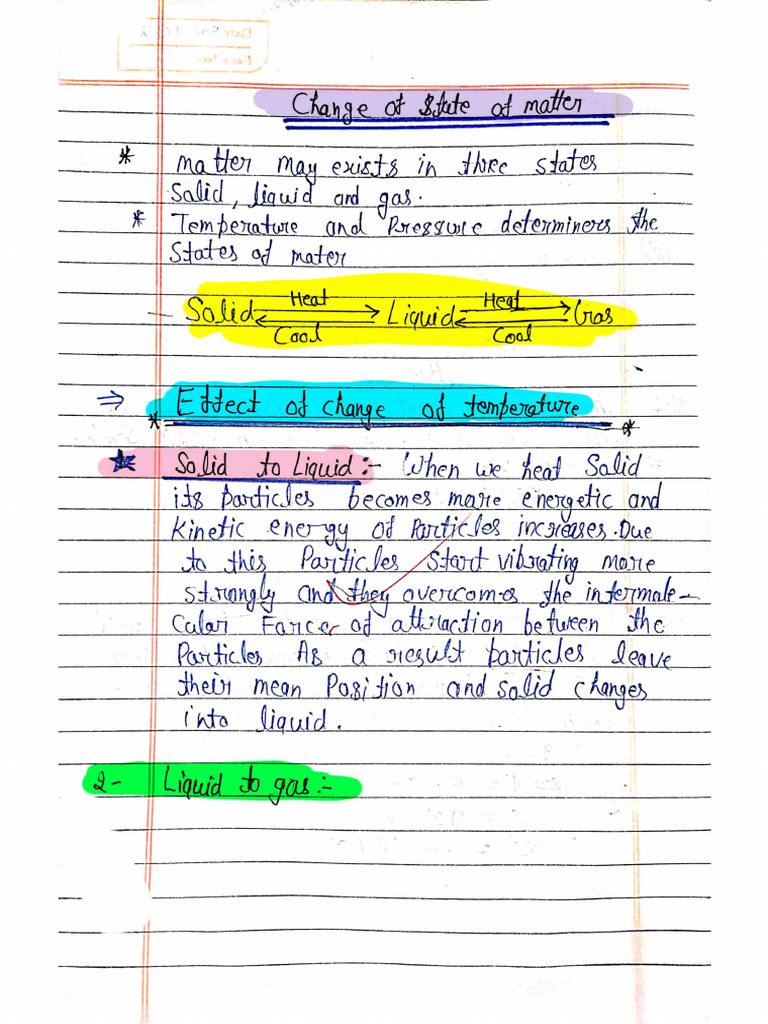 Change of State of matter
* matter may exists in three states
Solid, liquid and gas.
* Temperature and Pressure determiners the
States of mater
- Solid Heat Cool Liquid Heat Cool Gas
⇒ Effect of change of temperature
* *
★ Solid to Liquid :- When we heat Solid
its particles becomes more energetic and
Kinetic energy of Particles increases. Due
to this Particles start vibrating more
strongly and they overcomes the intermole-
cular Force of attraction between the
Particles As a result particles leave
their mean Position and solid changes
into liquid.
2- Liquid to gas :-